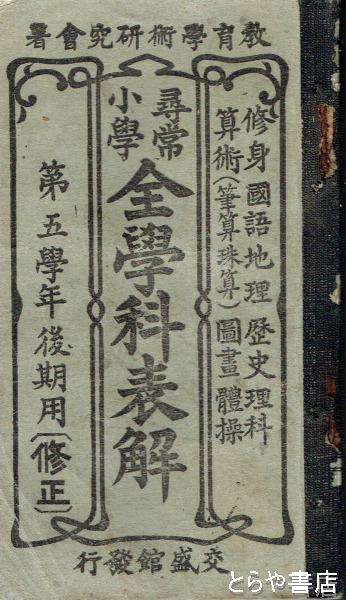 教育學術研究會著
修身國語地理歴史理科
算術(筆算珠算)圖畫體操
尋常
小學
全學科表解
第五學年後期用(修正)
交盛館發行
とらや書店